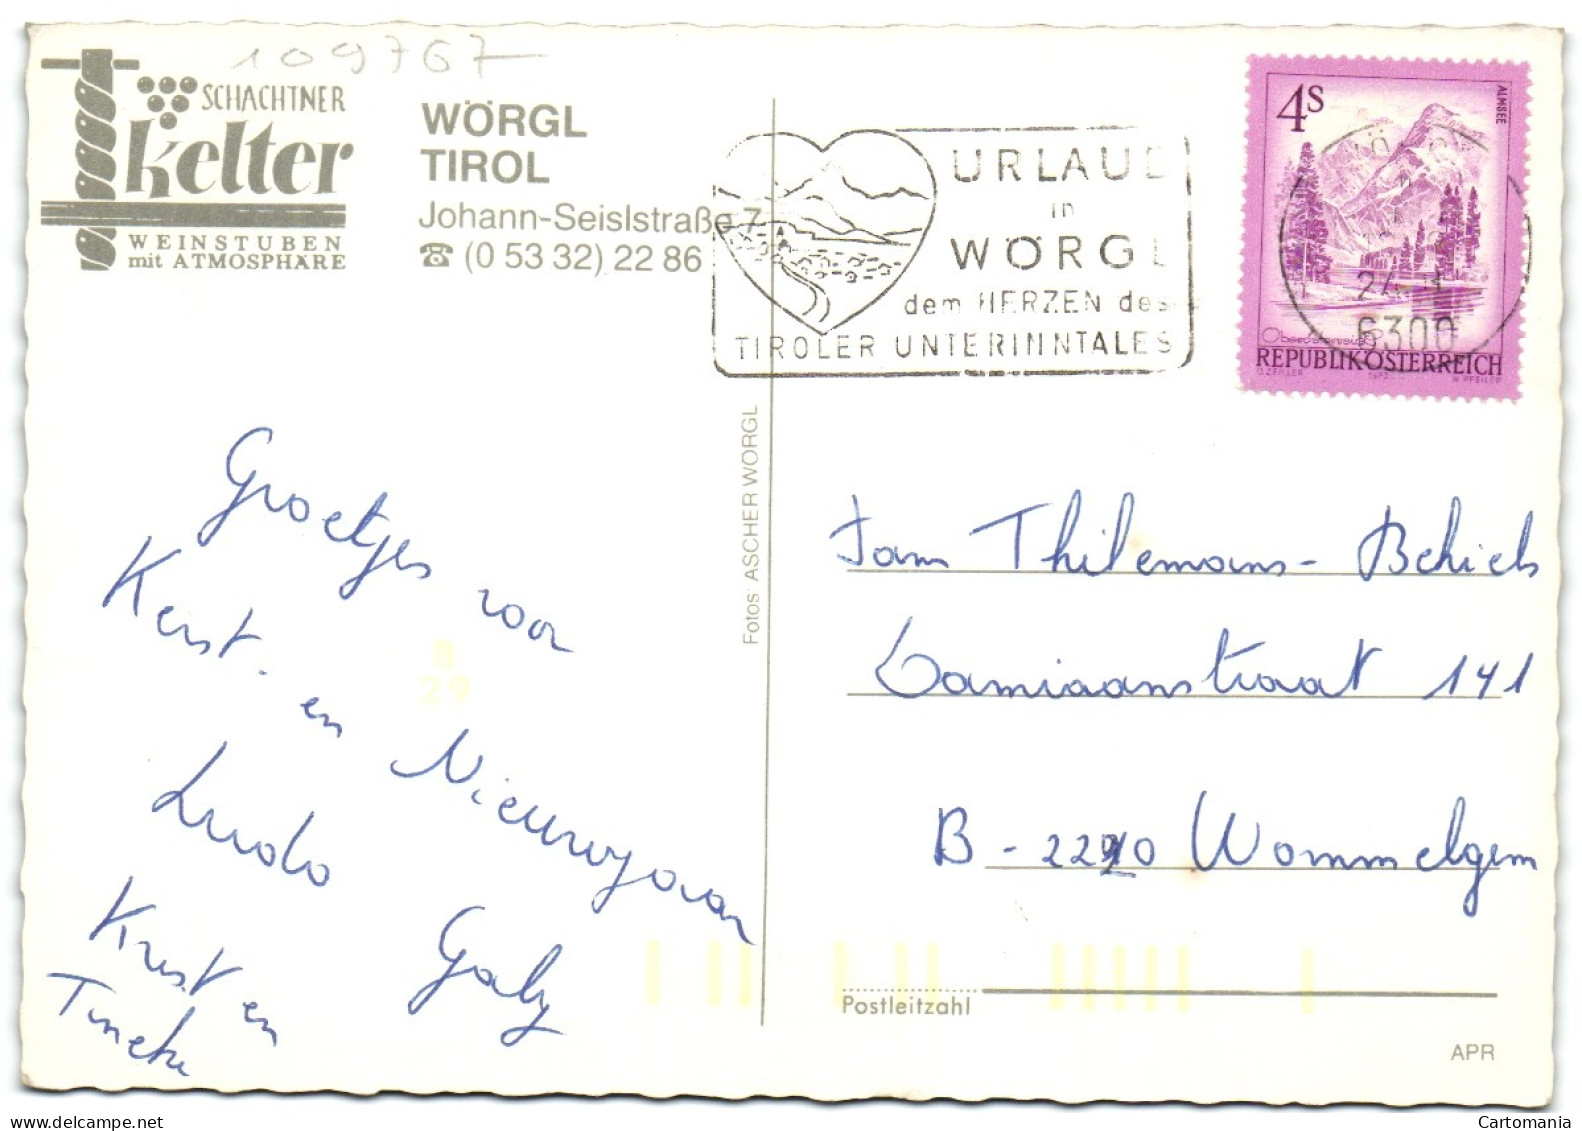 109767
SCHACHTNER
Kelter
WEINSTUBEN
mit ATMOSPHÄRE
WÖRGL
TIROL
Johann-Seislstraße 7
☎ (0 53 32) 22 86
URLAUB
in
WÖRGL
dem HERZEN des
TIROLER UNTERINNTALES
4S
ALMSEE
24
6300
REPUBLIK ÖSTERREICH
Groetjes voor
Kerst- en Nieuwjaar
Ludo Gaby
Krist en
Tineke
B
29
Fotos: ASCHER WÖRGL
Jam Thilemans-Bchiels
Damiaanstraat 141
B-2220 Wommelgem
Postleitzahl
APR
Cartomania